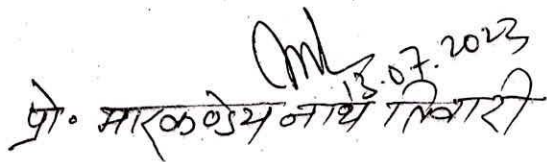 13.07.2023
प्रो० मारकण्डेय नाथ तिवारी